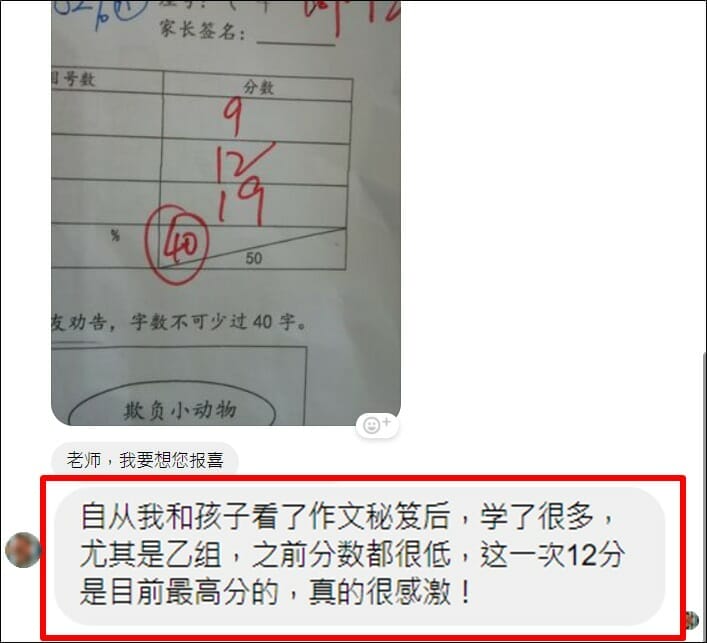 家长签名：
目号数 分数
9
12
19
% 40 50
友劝告，字数不可少过 40 字。
欺负小动物
老师，我要想您报喜
自从我和孩子看了作文秘笈后，学了很多，
尤其是乙组，之前分数都很低，这一次12分
是目前最高分的，真的很感激！